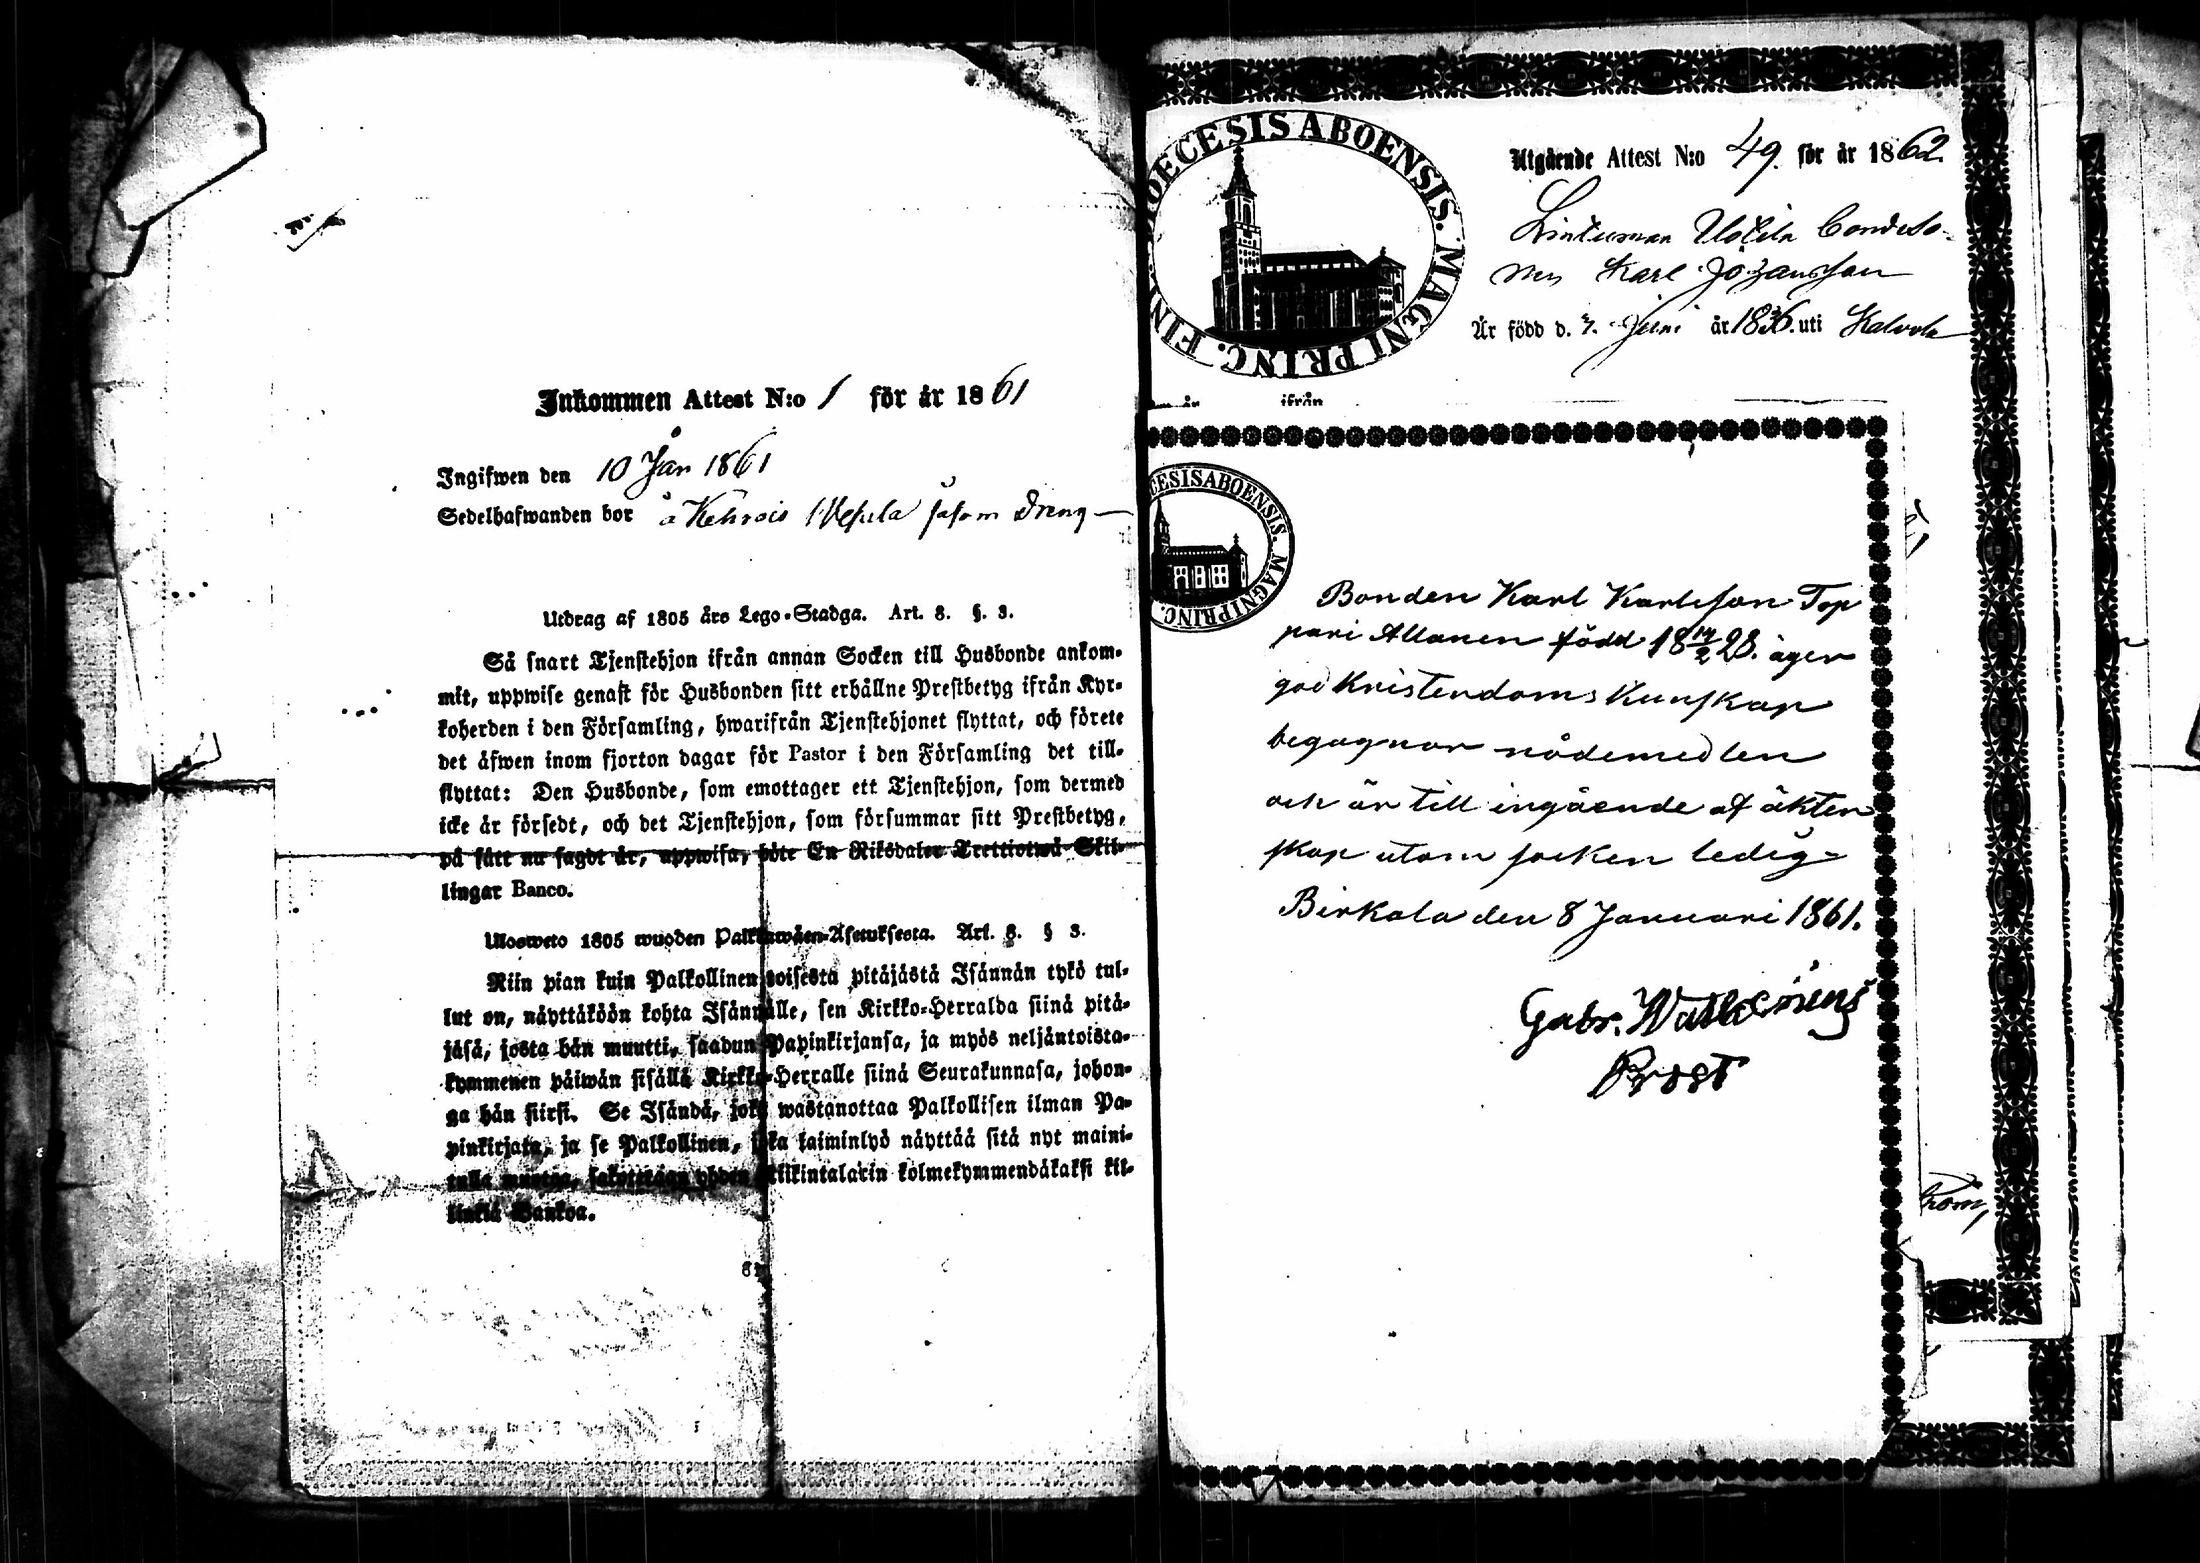 Inkommen Attest N:o 1 för år 1861
Ingifwen den 10 Jan 1861
Sedelhafwanden bor å såsom Dreng
Utdrag af 1805 års Lego-Stadga. Art. 8. §. 3.
Så snart Tjenstehjon ifrån annan Socken till Husbonde ankom-
mit, uppwise genast för Husbonden sitt erhållne Prestbetyg ifrån Kyr-
koherden i den Församling, hwarifrån Tjenstehjonet flyttat, och förete
det äfwen inom fjorton dagar för Pastor i den Församling det till-
flyttat: Den Husbonde, som emottager ett Tjenstehjon, som dermed
icke är försedt, och det Tjenstehjon, som försummar sitt Prestbetyg,
på sätt nu sagdt är, uppwisa, böte En Riksdaler Trettiotwå Skil-
lingar Banco.
Ulosweto 1805 wuoden Palkkawäen-Asetuksesta. Art. 8. § 3.
Niin pian kuin Palkollinen toisesta pitäjästä Isännän tykö tul-
lut on, näyttäköön kohta Isännälle, sen Kirkko-Herralda siinä pitä-
jäsä, josta hän muutti, saadun Papinkirjansa, ja myös neljäntoista-
kymmenen päiwän sisällä Kirkko-Herralle siinä Seurakunnasa, johon-
ga hän siirsi. Se Isändä, joka wastanottaa Palkollisen ilman Pa-
pinkirjata, ja se Palkollinen, joka laiminlyö näyttää sitä nyt maini-
tulla muotoa, sakotetaan yhden Riikintalarin kolmekymmendäkaksi kil-
linkiä Bankoa.
DIOECESIS ABOENSIS. MAGNI PRINC. FIN
Utgående Attest N:o 49. för år 1862
Karl Johansson
Är född d. 7. Juni år 1836. uti Kalvola
ifrån
CESIS ABOENSIS. MAGNI PRINC.
Bonden Karl Karlsson Top
pari Allanen född 18 14/2 28. äger
god Kristendoms Kunskap
begagnar nådemedlen
och är till ingående af äkten
skap utom socken ledig
Birkala den 8 Januari 1861.
Gabr. Wallenius
Prost